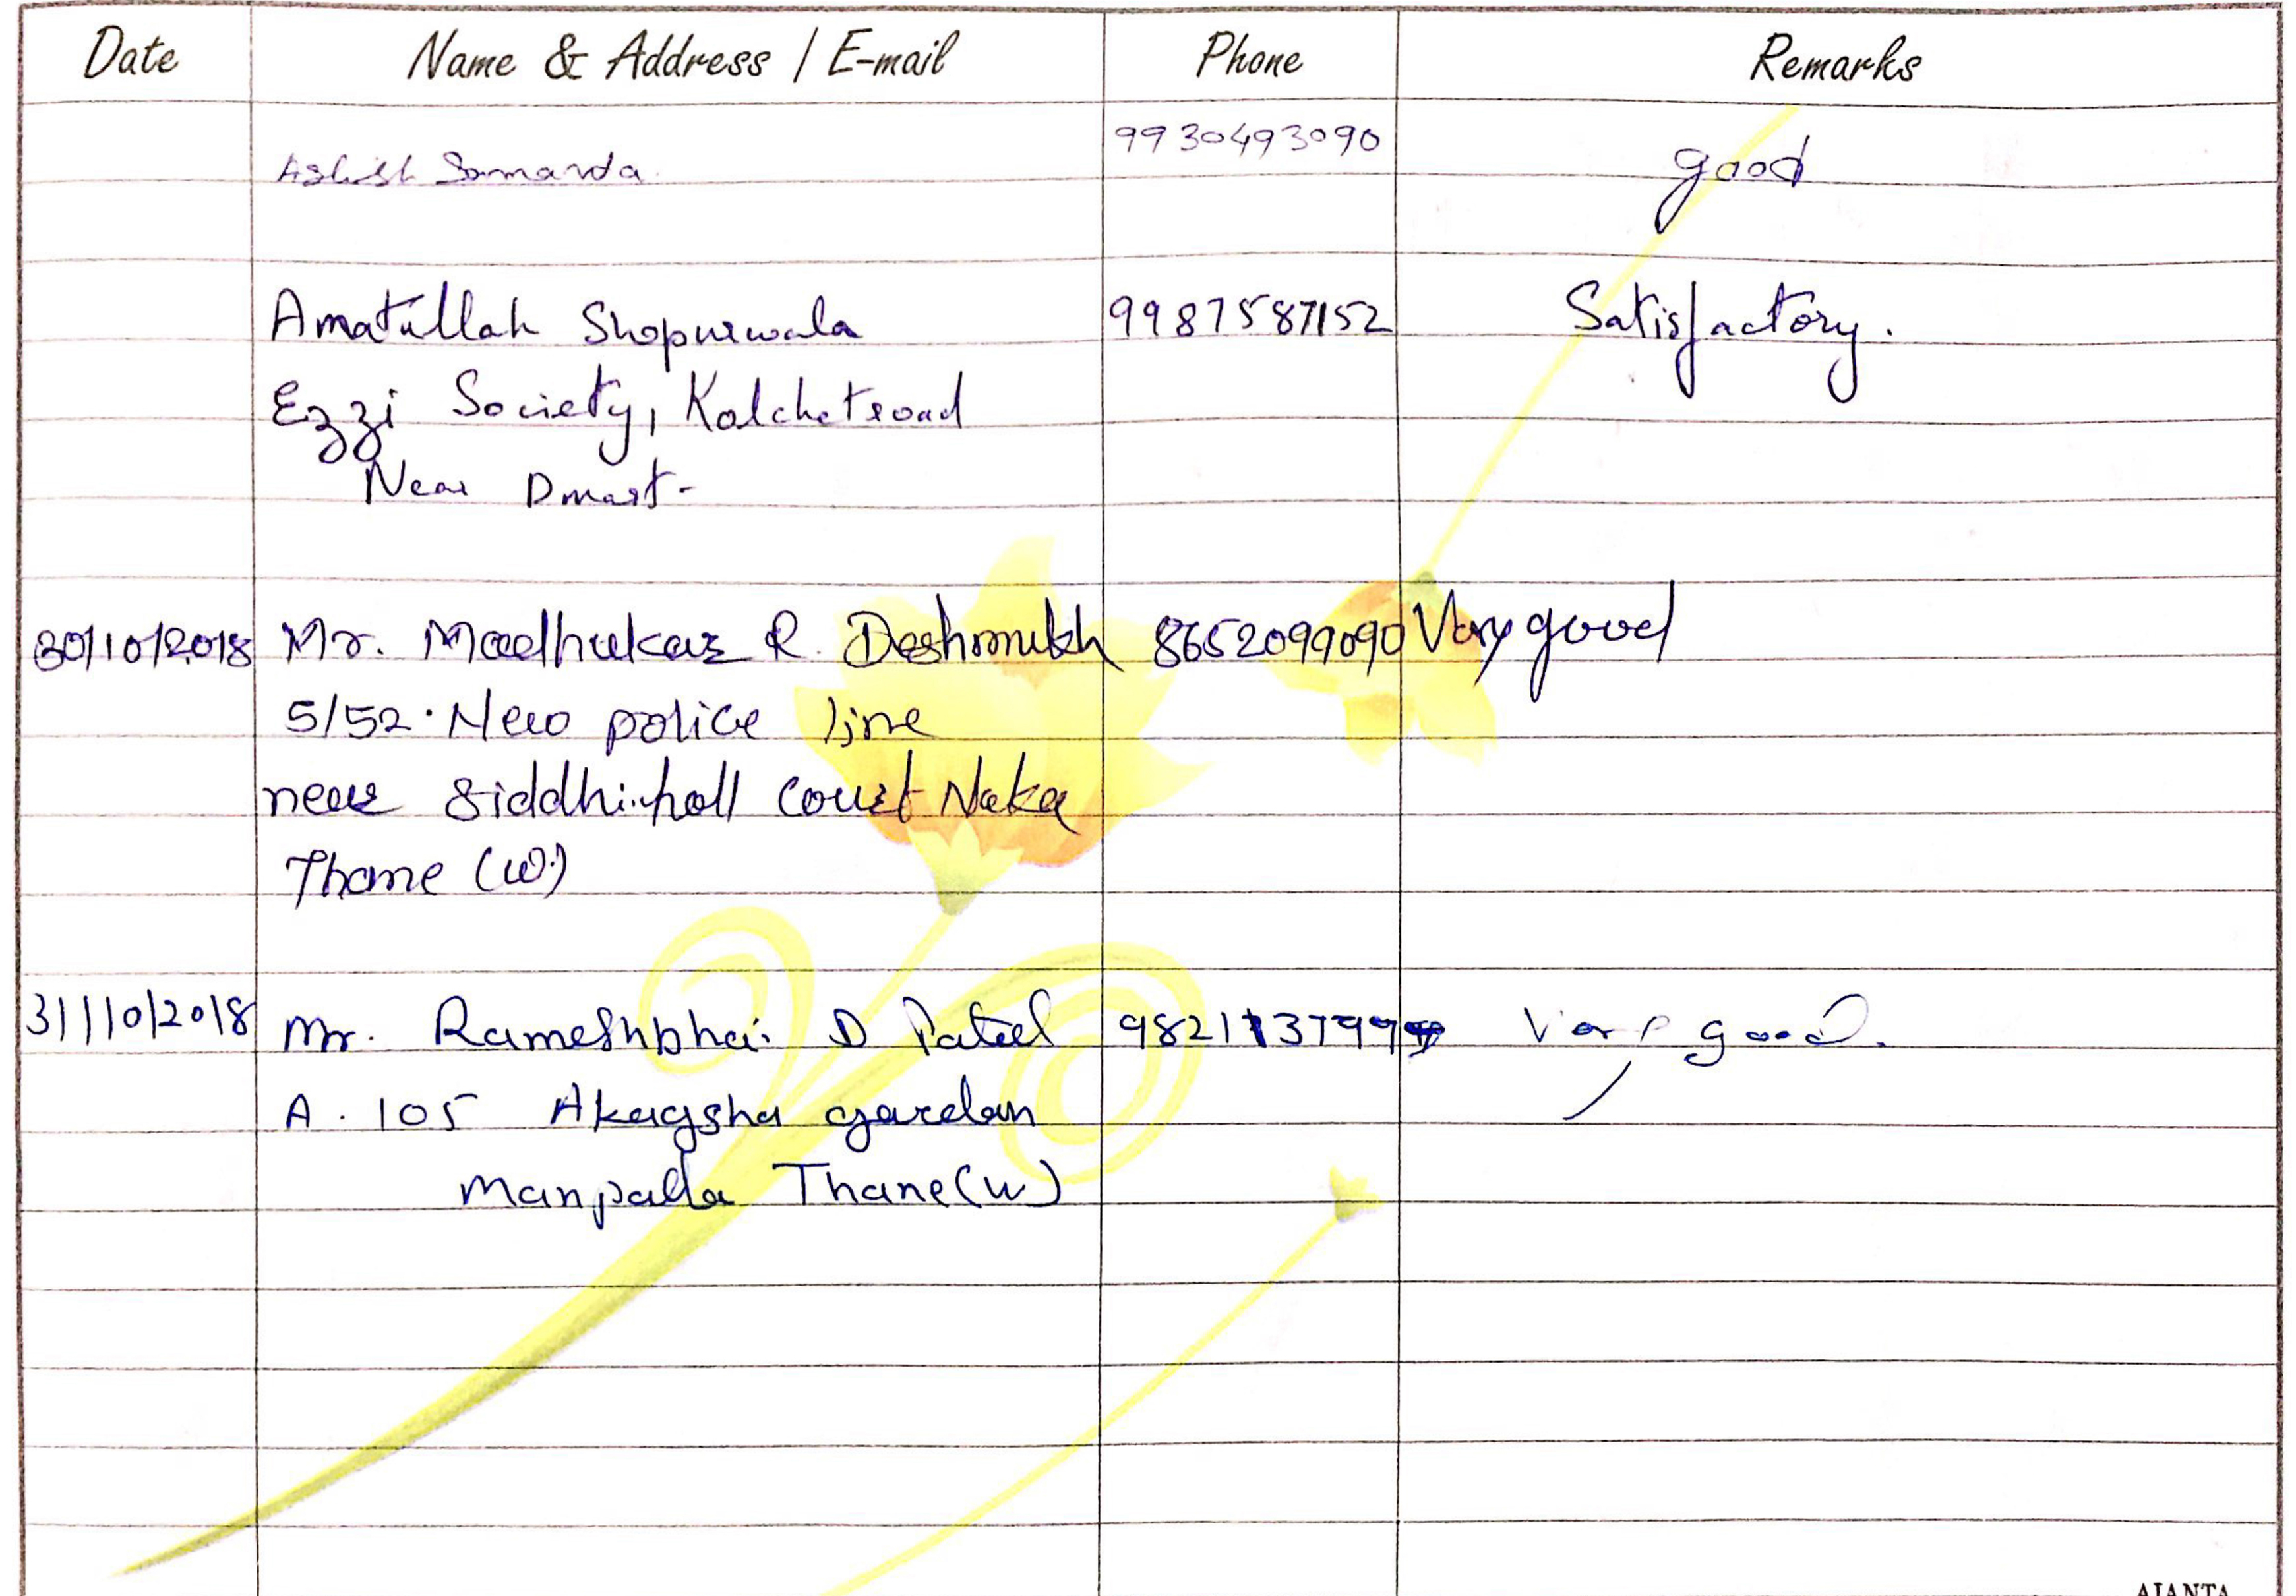 Date Name & Address / E-mail Phone Remarks
9930493090
Ashish Samanta good
Amatullah Shopurwala 9987587152 Satisfactory.
Ezzi Society, Kolchetroad
Near Dmart-
30/10/2018 Mr. Madhukar R. Deshmukh 8652099090 Very good
5/52. New police line
near Siddhi hall Court Naka
Thane (W.)
31/10/2018 Mr. Rameshbhai D Patel Very good.
A. 105 Akagsha garden
Manpada Thane (W)
AJANTA